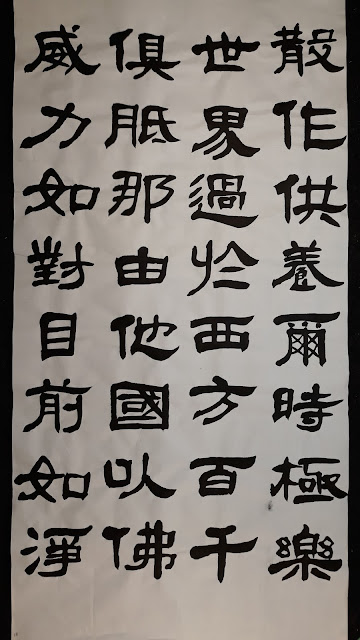 散作供養爾時極樂
世界過於西方百千
俱胝那由他國以佛
威力如對目前如淨